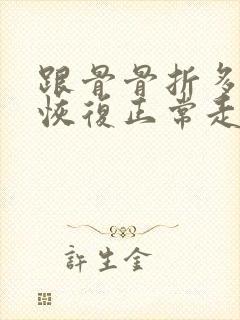 跟骨骨折多
恢復正常走
許生金